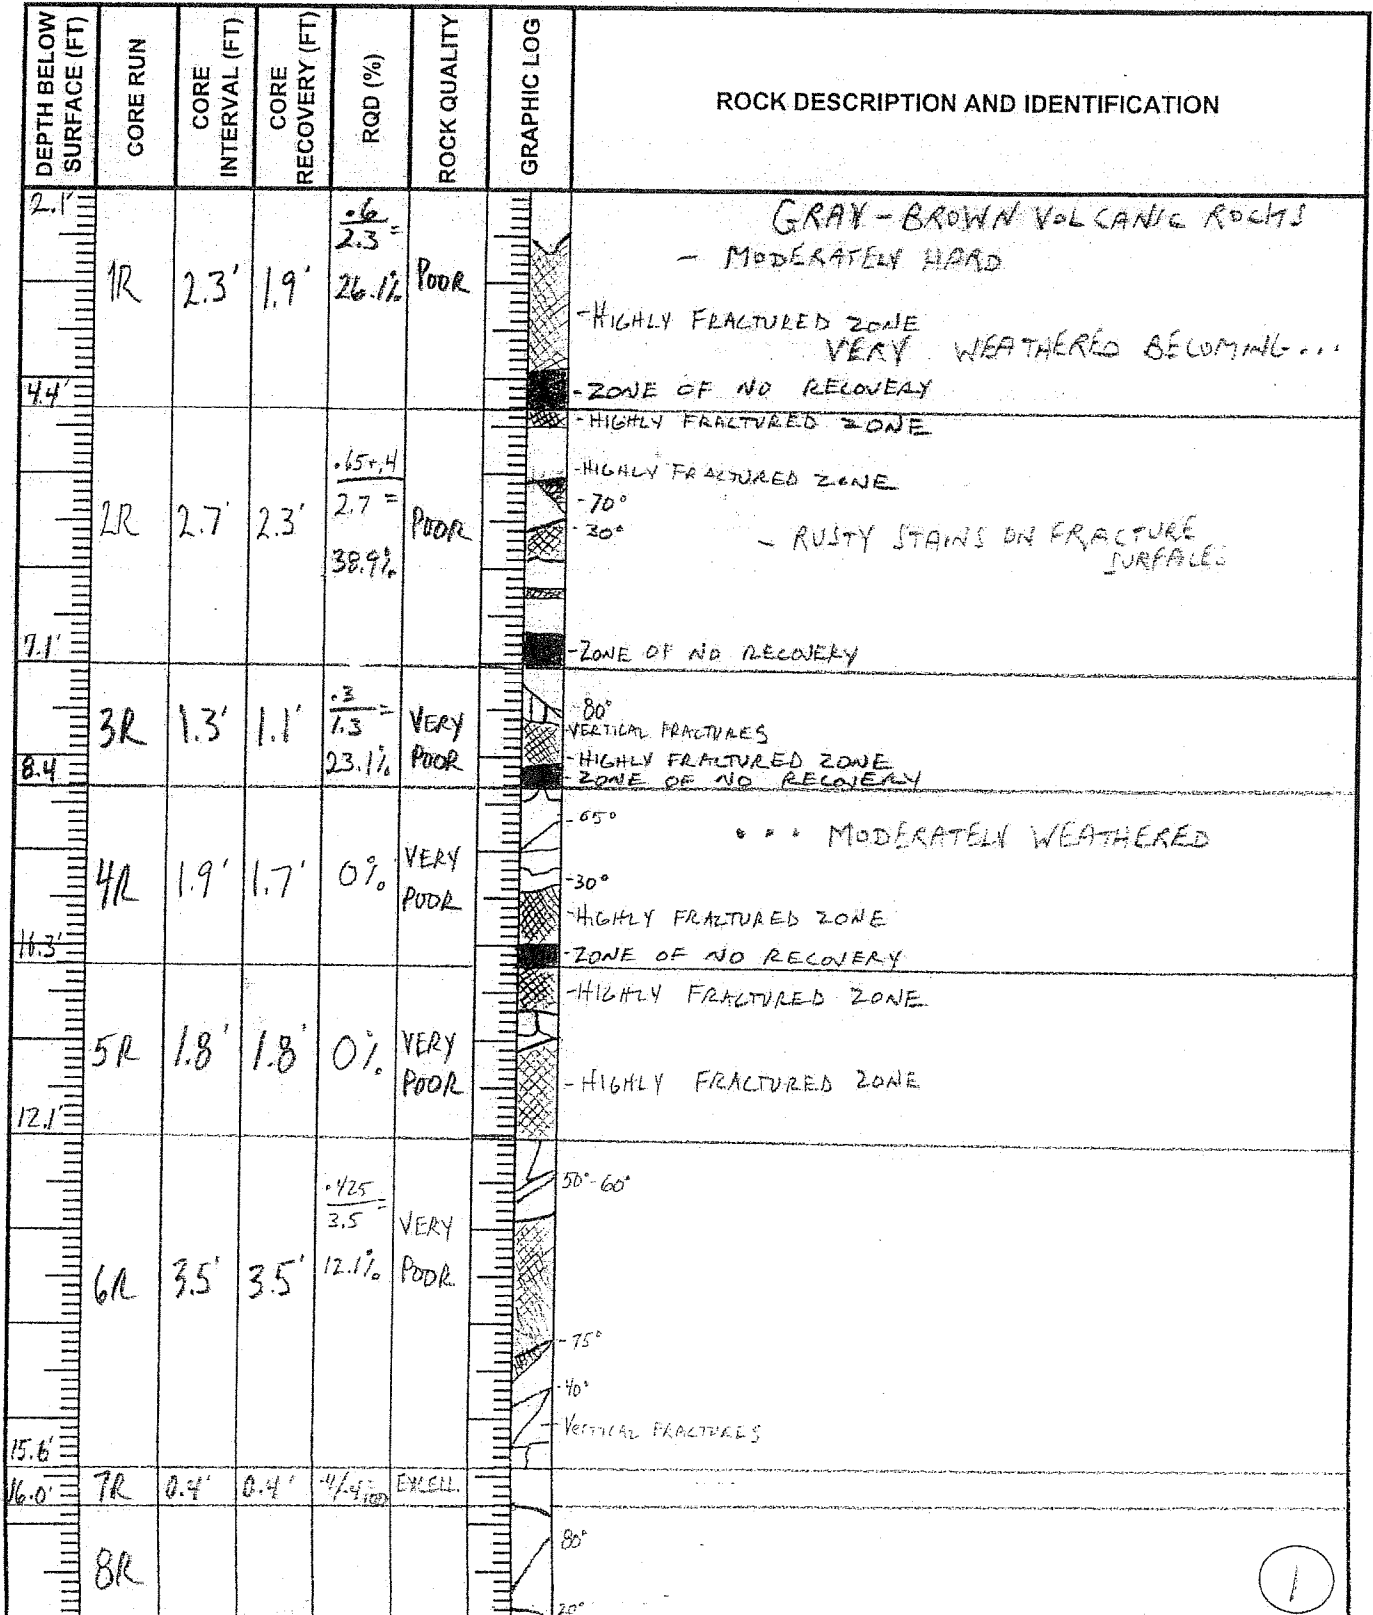 DEPTH BELOW SURFACE (FT)
CORE RUN
CORE INTERVAL (FT)
CORE RECOVERY (FT)
RQD (%)
ROCK QUALITY
GRAPHIC LOG
ROCK DESCRIPTION AND IDENTIFICATION
2.1'
1R 2.3' 1.9' .6/2.3 = 26.1% POOR
GRAY-BROWN VOLCANIC ROCKS
- MODERATELY HARD
-HIGHLY FRACTURED ZONE
VERY WEATHERED BECOMING...
4.4'
-ZONE OF NO RECOVERY
-HIGHLY FRACTURED ZONE
2R 2.7' 2.3' .65+.4/2.7 = 38.9% POOR
-HIGHLY FRACTURED ZONE
-70°
-30°
- RUSTY STAINS ON FRACTURE
SURFACES
7.1'
-ZONE OF NO RECOVERY
3R 1.3' 1.1' .3/1.3 = 23.1% VERY POOR
-80°
-VERTICAL FRACTURES
-HIGHLY FRACTURED ZONE
8.4
-ZONE OF NO RECOVERY
4R 1.9' 1.7' 0% VERY POOR
-65°
... MODERATELY WEATHERED
-30°
-HIGHLY FRACTURED ZONE
-ZONE OF NO RECOVERY
-HIGHLY FRACTURED ZONE
5R 1.8' 1.8' 0% VERY POOR
-HIGHLY FRACTURED ZONE
12.1'
6R 3.5' 3.5' .425/3.5 = 12.1% VERY POOR
50°-60°
-75°
-40°
-VERTICAL FRACTURES
15.6'
7R 0.4' 0.4' .4/.4=100 EXCELL.
16.0'
8R
80°
20°
1